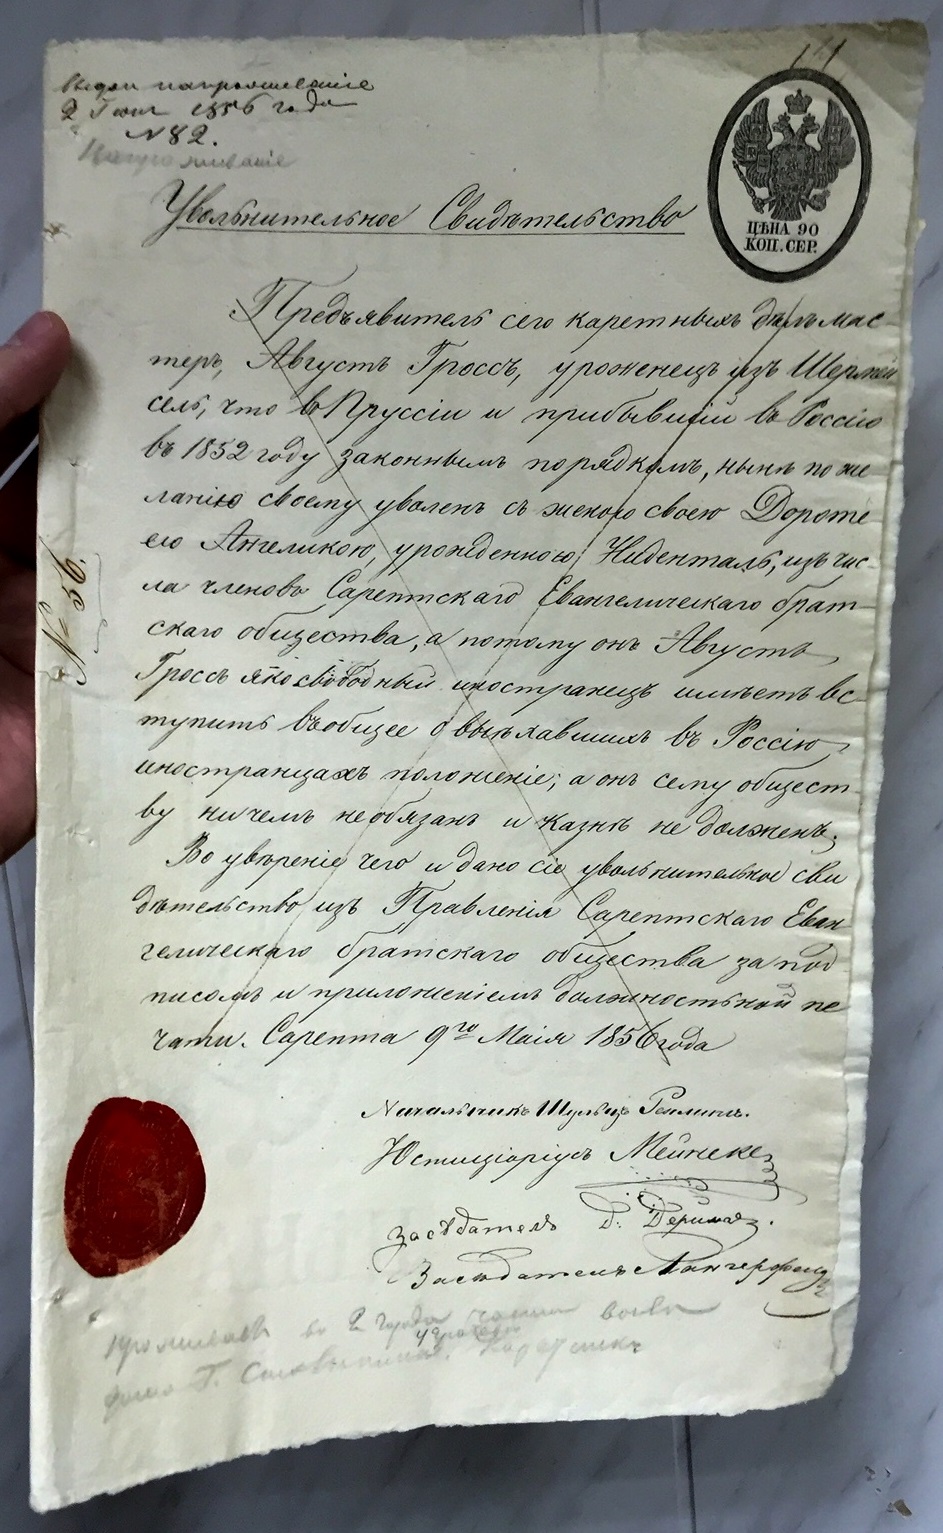 выдан на прожитіе
2 1856 года
№ 82.
На проживаніе
ЦѢНА 90
КОП. СЕР.
Увольнительное Свидѣтельство
Предъявитель сего каретныхъ дѣлъ мас-
теръ, Августъ Гроссъ, уроженецъ изъ
сель, что въ Пруссіи и прибывшій въ Россію
въ 1852 году законнымъ порядкомъ, нынѣ по же
ланію своему уволенъ съ женою своею Дороте
ею Ангеликою, урожденною Ниденталь, изъ чис-
ла членовъ Сарептскаго Евангелическаго брат-
скаго общества, а потому онъ Августъ
Гроссъ яко свободный иностранецъ имѣетъ вс-
тупить въ общее о выѣхавшихъ въ Россію
иностранцахъ положеніе; а онъ сему общест-
ву ничемъ не обязанъ и казнѣ не долженъ.
Во увѣреніе чего и дано сіе увольнительное сви
дѣтельство изъ Правленія Сарептскаго Еван
гелическаго братскаго общества за под
писомъ и приложеніемъ должностьной пе
чати. Сарепта 9го Маія 1856 года
№ 56.
Начальникъ Шульцъ
Юстиціаріусъ Мейнеке
Засѣдатель Д:
Засѣдатель Лангерфельд
во 2 части
дома Г.